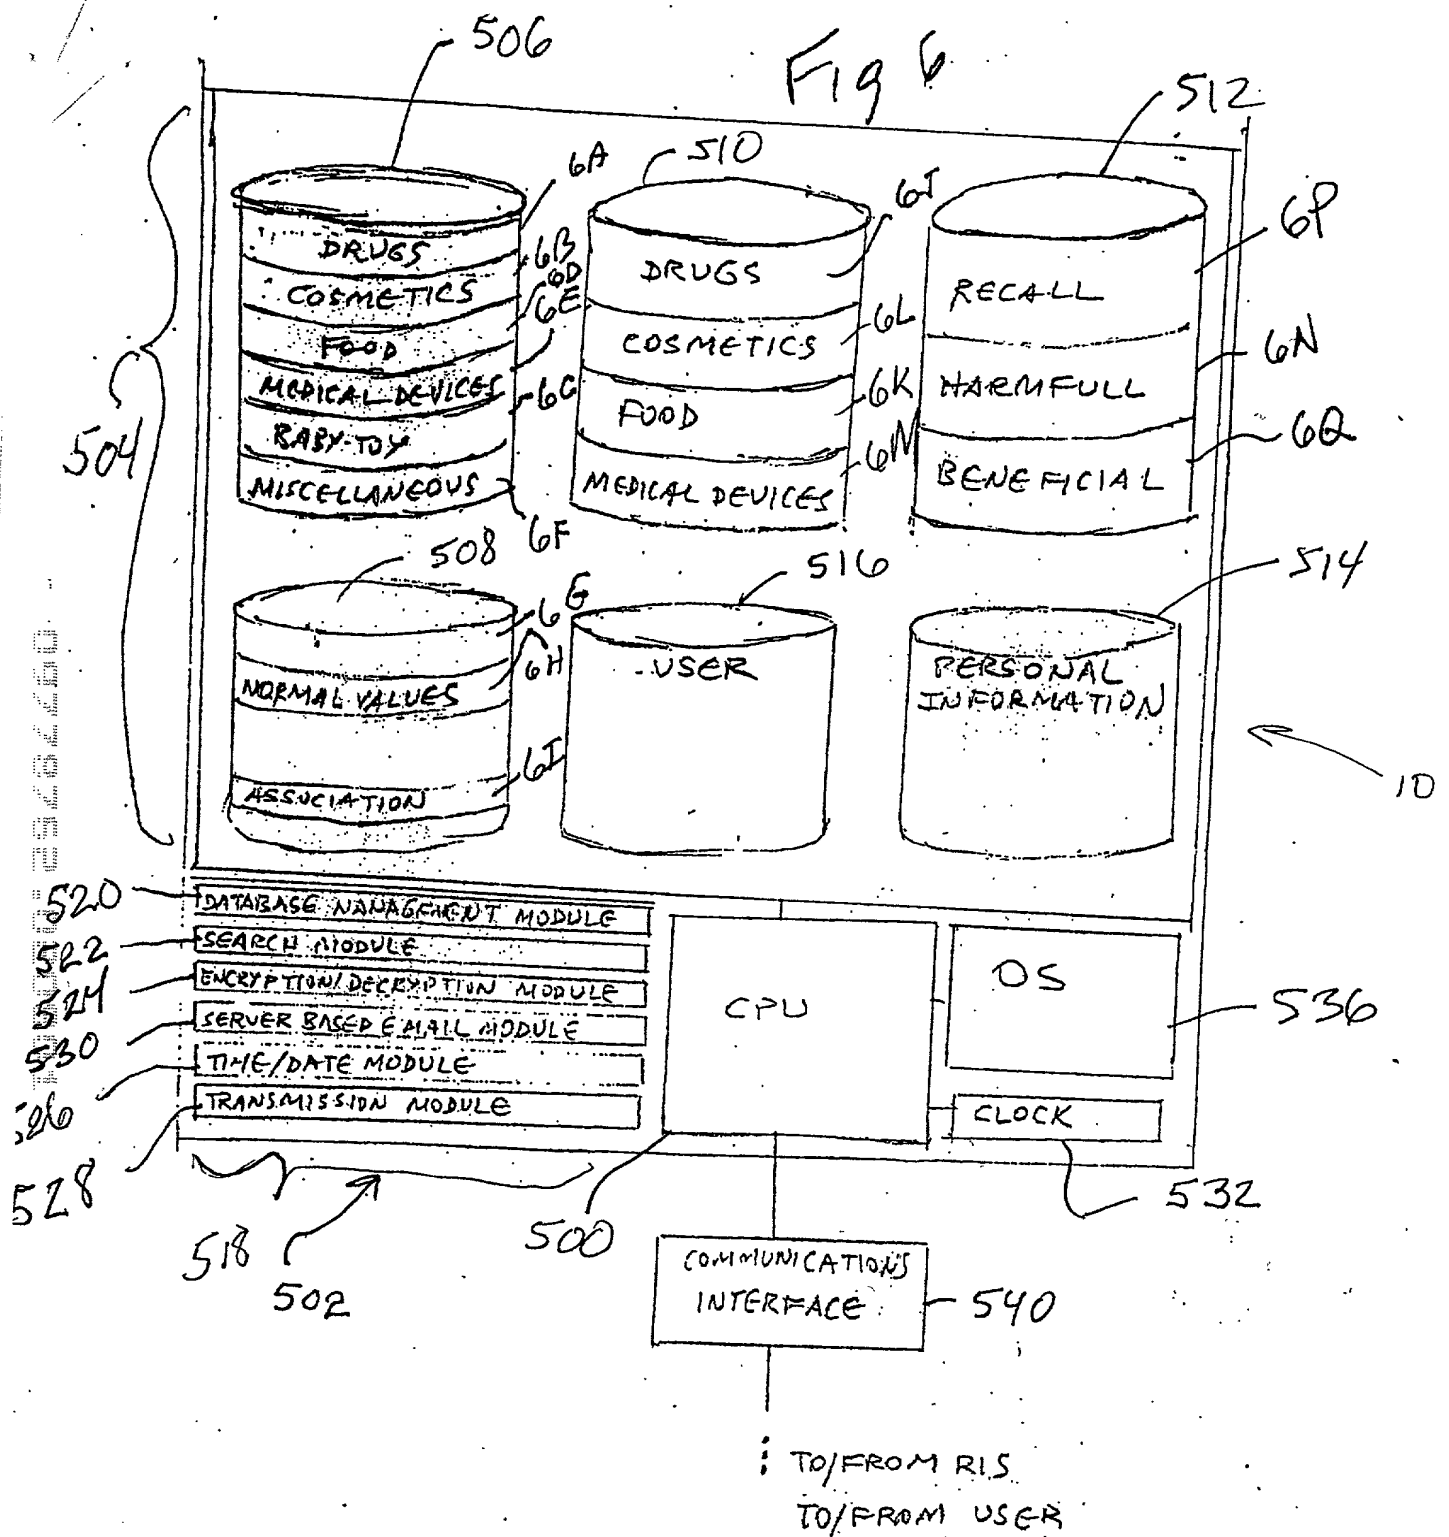 Fig 6
506
510
512
6A
6B
6D
6E
6C
6F
DRUGS
COSMETICS
FOOD
MEDICAL DEVICES
BABY-TOY
MISCELLANEOUS
6J
6L
6K
6M
DRUGS
COSMETICS
FOOD
MEDICAL DEVICES
6P
6N
6Q
RECALL
HARMFULL
BENEFICIAL
504
508
516
514
6G
6H
6I
NORMAL VALUES
ASSOCIATION
USER
PERSONAL
INFORMATION
10
520
DATABASE MANAGEMENT MODULE
522
SEARCH MODULE
524
ENCRYPTION/DECRYPTION MODULE
530
SERVER BASED EMAIL MODULE
526
TIME/DATE MODULE
528
TRANSMISSION MODULE
CPU
OS
536
CLOCK
532
518
502
500
COMMUNICATIONS
INTERFACE
540
TO/FROM RIS
TO/FROM USER